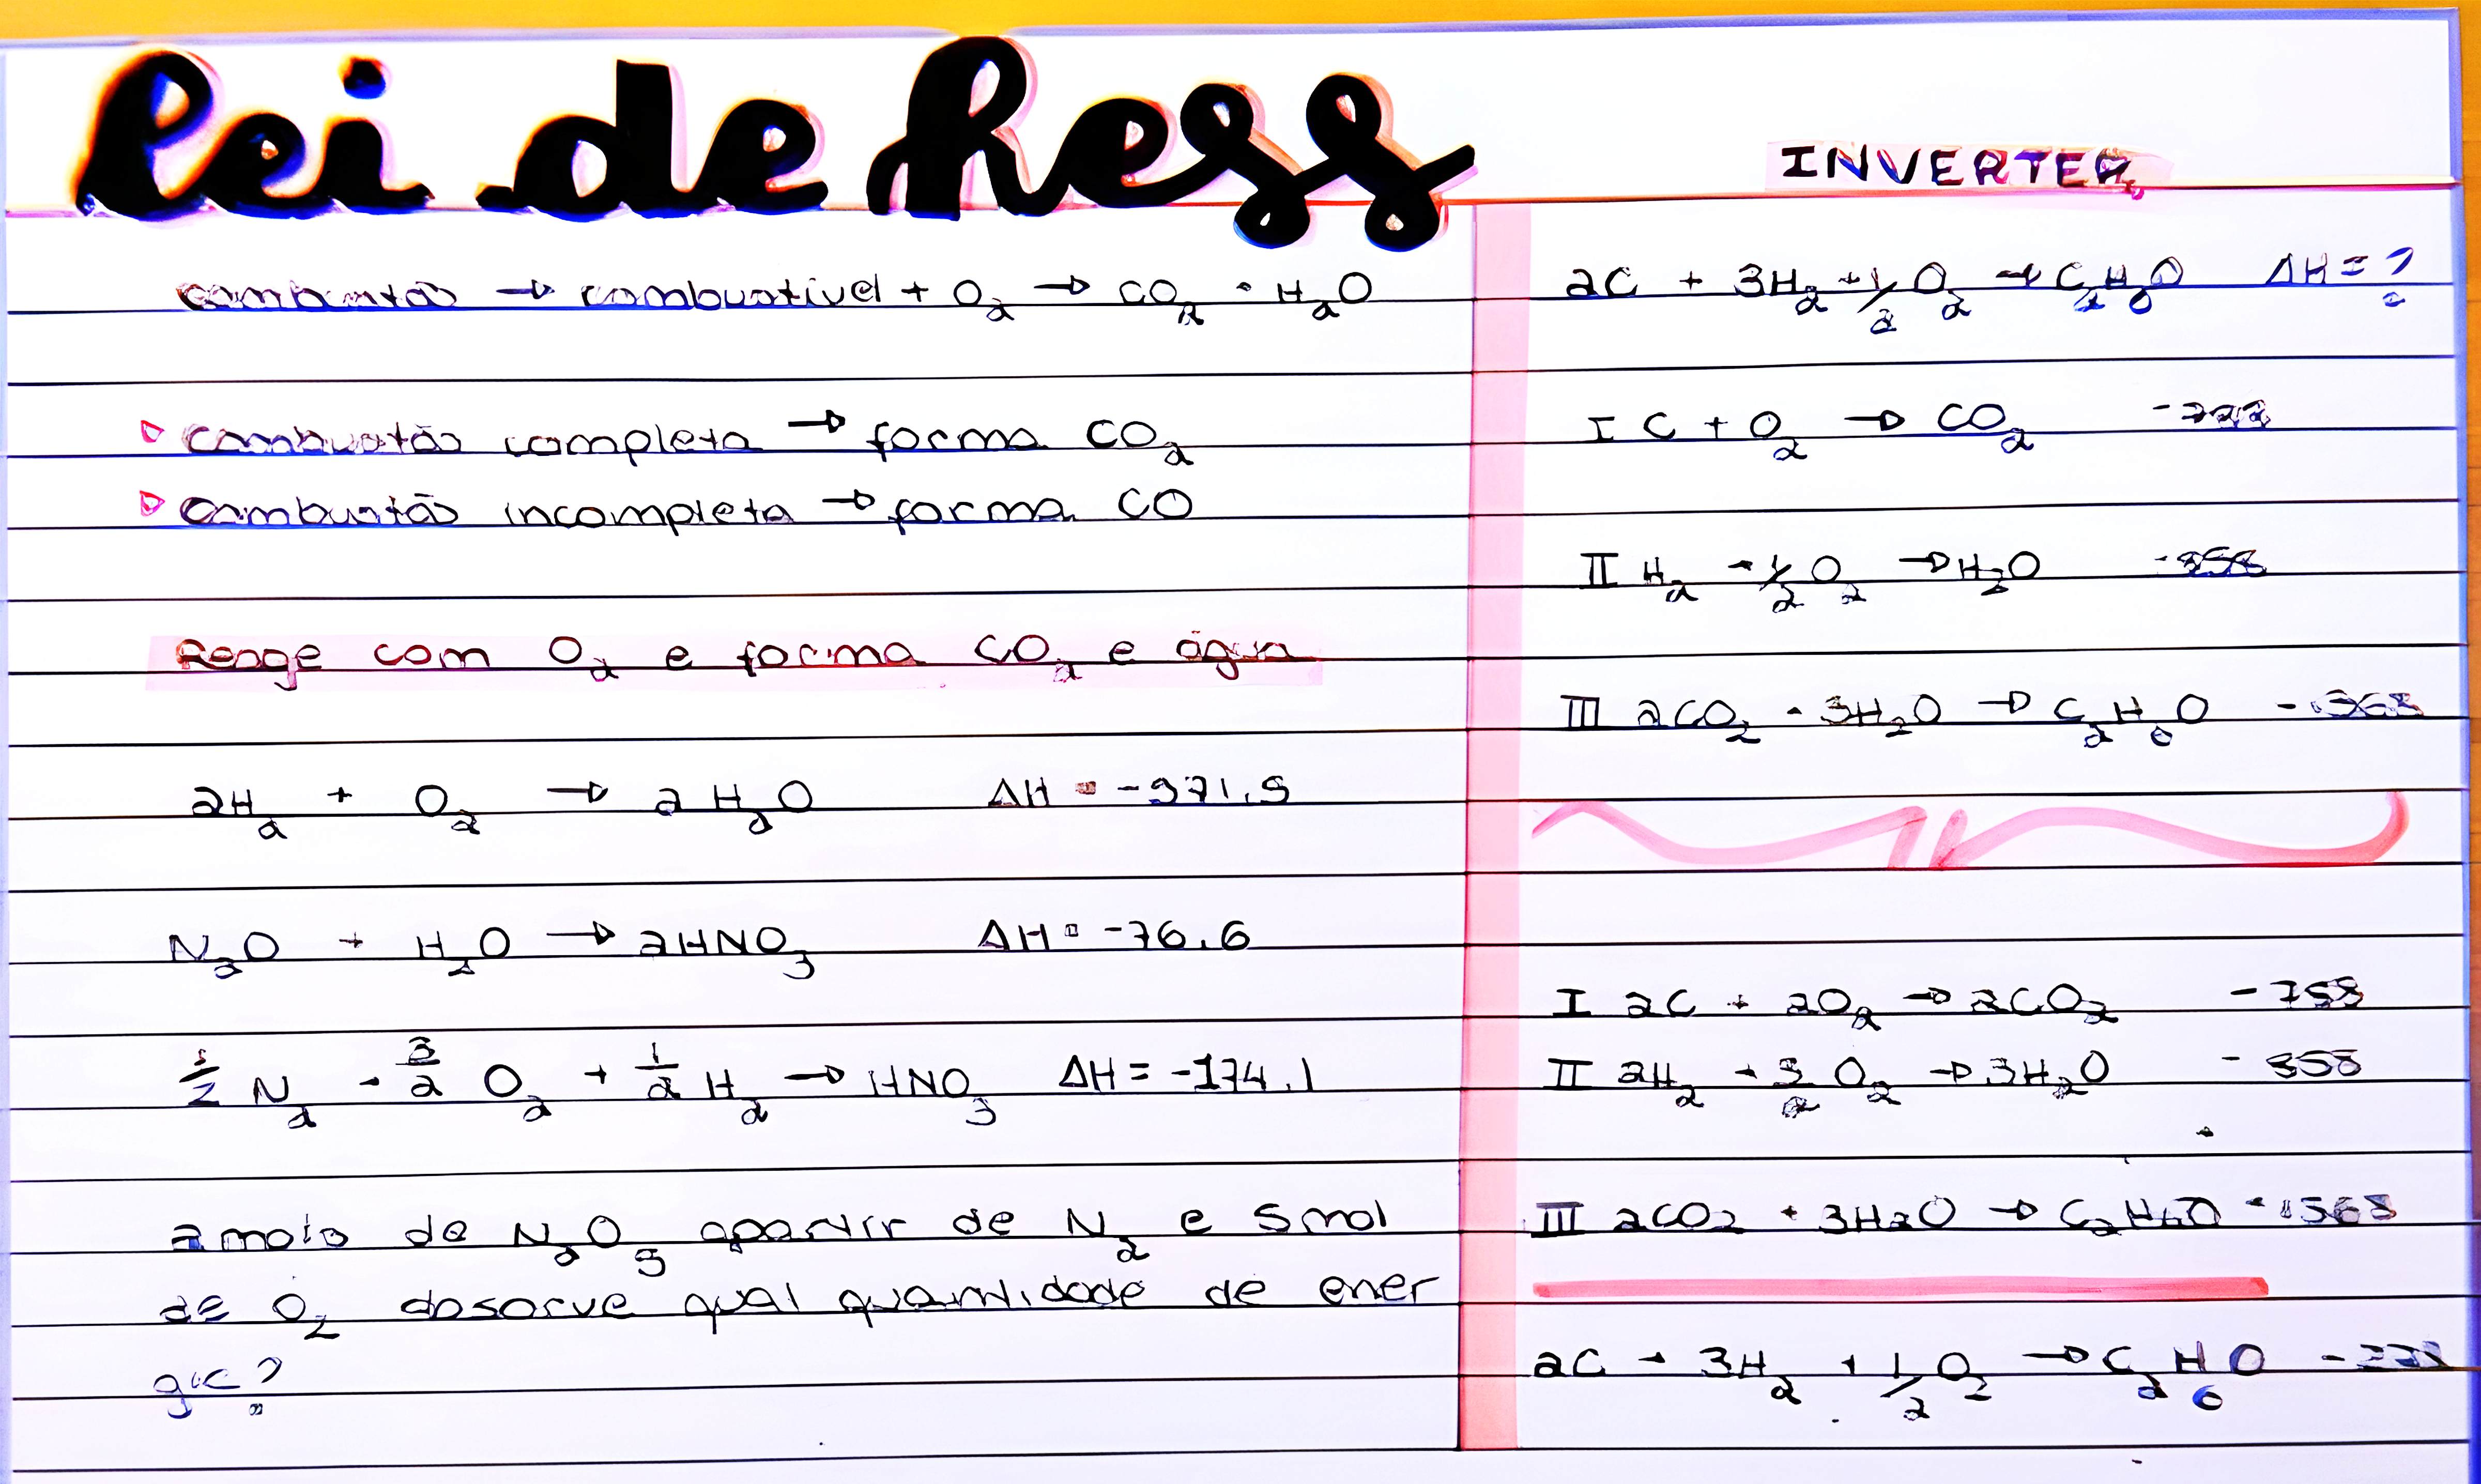 lei de hess
combustão → combustível + O₂ → CO₂ + H₂O
▷ combustão completa → forma CO₂
▷ combustão incompleta → forma CO
Reage com O₂ e forma CO₂ e água
2H₂ + O₂ → 2 H₂O ΔH = -571,5
N₂O + H₂O → 2HNO₃ ΔH = -76,6
1/2 N₂ + 3/2 O₂ + 1/2 H₂ → HNO₃ ΔH = -174,1
2 mols de N₂O₅ apartir de N₂ e 5 mol
de O₂ absorve qual quantidade de ener
gia ?
INVERTER
2C + 3H₂ + 1/2 O₂ → C₂H₆O ΔH = ?
I C + O₂ → CO₂
II H₂ + 1/2 O₂ → H₂O
III 2CO₂ + 3H₂O → C₂H₆O
I 2C + 2O₂ → 2CO₂ -788
II 2H₂ + 3/2 O₂ → 3H₂O - 858
III 2CO2 + 3H2O → C2H6O + 1368
2C + 3H₂ + 1/2 O₂ → C₂H₆O